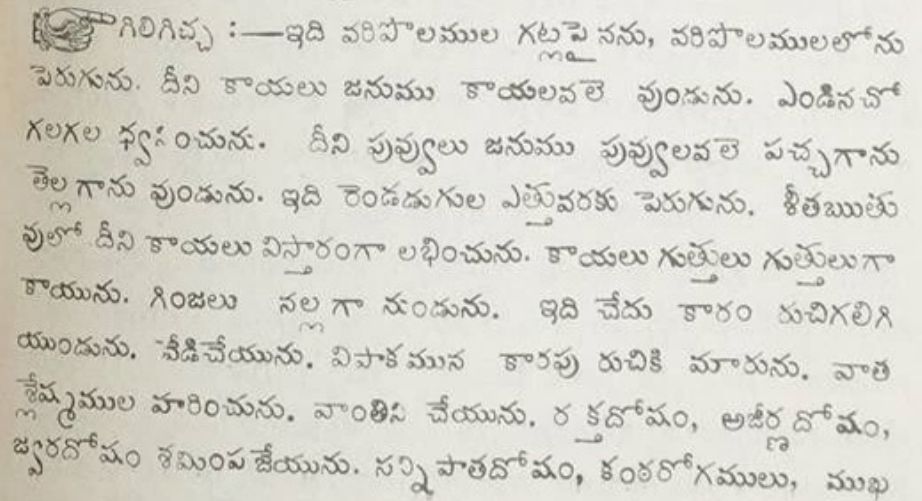 గిలిగిచ్చ :—ఇది వరిపొలముల గట్లపై నను, వరిపొలములలోను
పెరుగును. దీని కాయలు జనుము కాయలవలె వుండును. ఎండినచో
గలగల ధ్వనించును. దీని పువ్వులు జనుము పువ్వులవలె పచ్చగాను
తెల్లగాను వుండును. ఇది రెండడుగుల ఎత్తువరకు పెరుగును. శీతఋతు
వులో దీని కాయలు విస్తారంగా లభించును. కాయలు గుత్తులు గుత్తులుగా
కాయును. గింజలు నల్లగా నుండును. ఇది చేదు కారం రుచిగలిగి
యుండును. వేడిచేయును. విపాకమున కారపు రుచికి మారును. వాత
శ్లేష్మముల హరించును. వాంతిని చేయును. రక్తదోషం, అజీర్ణదోషం,
జ్వరదోషం శమింపజేయును. సన్నిపాతదోషం, కంఠరోగములు, ముఖ